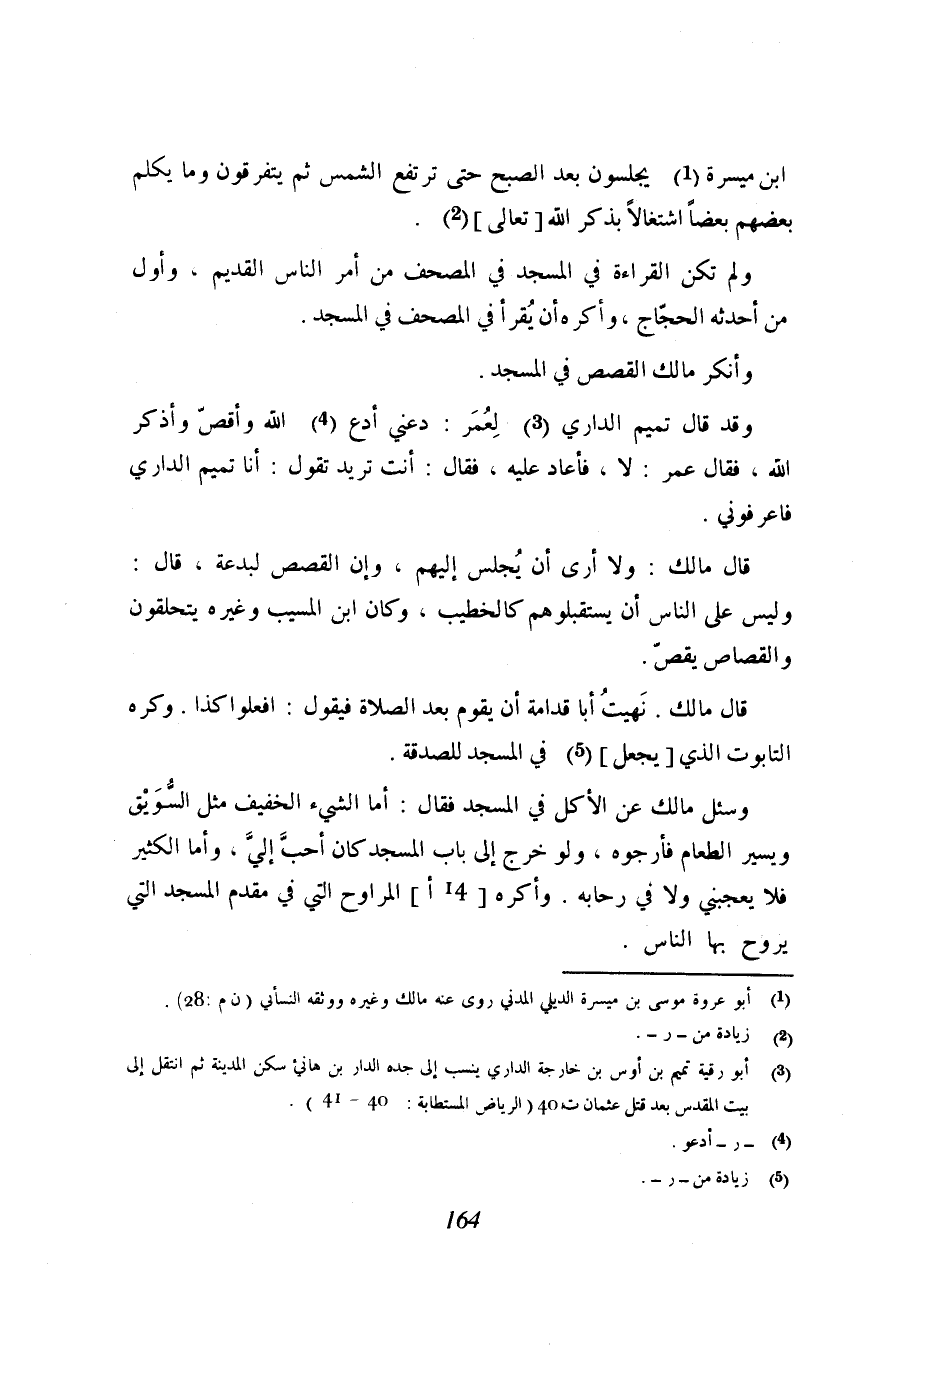 ابن ميسرة (1) يجلسون بعد الصبح حتى ترتفع الشمس ثم يتفرقون وما يكلم
بعضهم بعضاً اشتغالاً بذكر الله [ تعالى ] (2) .
ولم تكن القراءة في المسجد في المصحف من أمر الناس القديم ، وأول
من أحدثه الحجّاج ، وأكره أن يُقرأ في المصحف في المسجد .
وأنكر مالك القصص في المسجد .
وقد قال تميم الداري (3) لِعُمَر : دعني أدع (4) الله وأقصّ وأذكر
الله ، فقال عمر : لا ، فأعاد عليه ، فقال : أنت تريد تقول : أنا تميم الداري
فاعرفوني .
قال مالك : ولا أرى أن يُجلس إليهم ، وإن القصص لبدعة ، قال :
وليس على الناس أن يستقبلوهم كالخطيب ، وكان ابن المسيب وغيره يتحلقون
والقصاص يقصّ .
قال مالك . نَهيتُ أبا قدامة أن يقوم بعد الصلاة فيقول : افعلوا كذا . وكره
التابوت الذي [ يجعل ] (5) في المسجد للصدقة .
وسئل مالك عن الأكل في المسجد فقال : أما الشيء الخفيف مثل السُّوَيْق
ويسير الطعام فأرجوه ، ولو خرج إلى باب المسجد كان أحبَّ إليَّ ، وأما الكثير
فلا يعجبني ولا في رحابه . وأكره [ 14 أ ] المراوح التي في مقدم المسجد التي
يروح بها الناس .
(1) أبو عروة موسى بن ميسرة الديلي المدني روى عنه مالك وغيره ووثقه النسأني ( ن م :28) .
(2) زيادة من – ر – .
(3) أبو رقية تميم بن أوس بن خارجة الداري ينسب إلى جده الدار بن هانئ سكن المدينة ثم انتقل إلى
بيت المقدس بعد قتل عثمان ت، 40 ( الرياض المستطابة : 40 – 41 ) .
(4) – ر – أدعو .
(5) زيادة من – ر – .
164